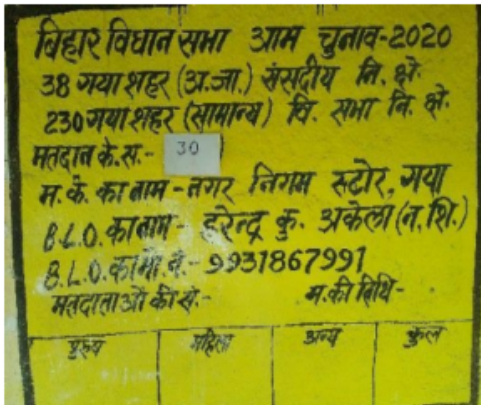 बिहार विधान सभा आम चुनाव-2020
38 गया शहर (अ.जा.) संसदीय नि. क्षे.
230 गया शहर (सामान्य) वि. सभा नि. क्षे.
मतदान के.स.- 30
म. के. का नाम - नगर निगम स्टोर, गया
B.L.O. का नाम - हरेन्द्र कु. अकेला (न. शि.)
B.L.O. का मो. नं.- 9931867991
मतदाताओं की सं.- म. की तिथि-
पुरुष महिला अन्य कुल